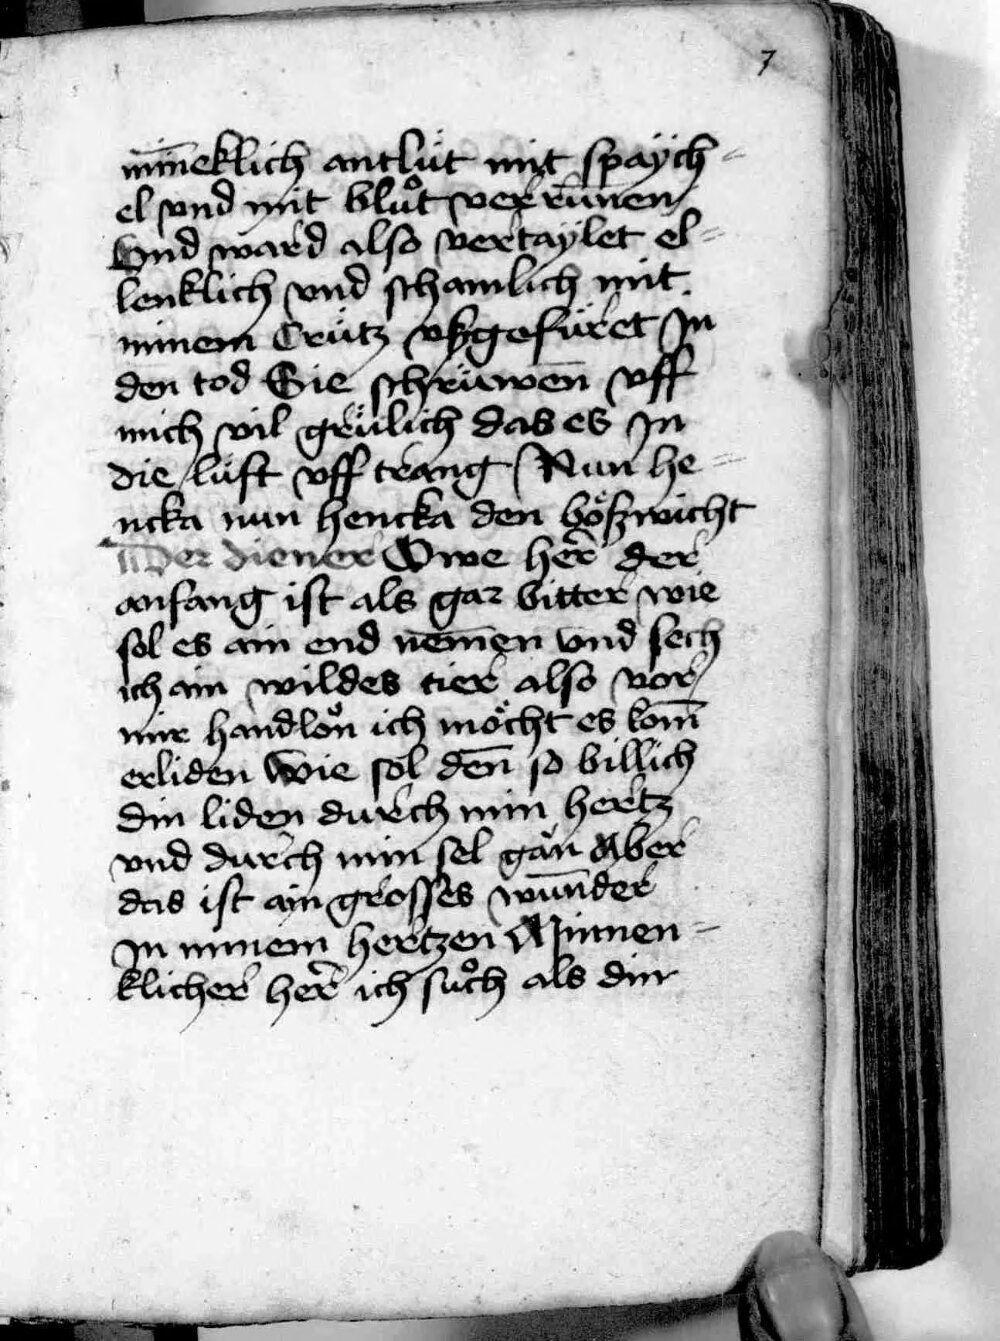 7
min̄eklich antlüt mit spaÿch=
el vnd mit blůt verrūnen
Vnd ward also vertaÿlet el=
lenklich vnd schamlich mit
minem Crütz vßgefüret In
den tod Sie schrüwen vff
mich vil grülich das es In
die lüft vff trang Nun he=
ncka nun hencka den bößwicht
Der diener Owe her̄ der
anfang ist als gar bitter wie
sol es ain end nem̄en Vnd sech
ich ain wildes tier also vor
mir handlon ich möcht es kom̄
erliden Wie sol den̄ so billich
din liden durch min hertz
vnd durch min sel gän Aber
das ist ain grosses wūnder
In minem hertzen Minnen=
klicher her̄ ich sůch als din